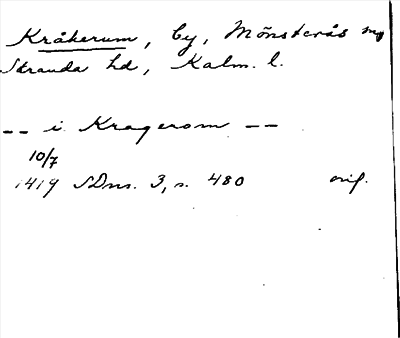 Kråkerum, by, Mönsterås sn
Stranda hd, Kalm. l.
-- i Kragerom --
10/7
1419 SDns. 3, s. 480 orig.